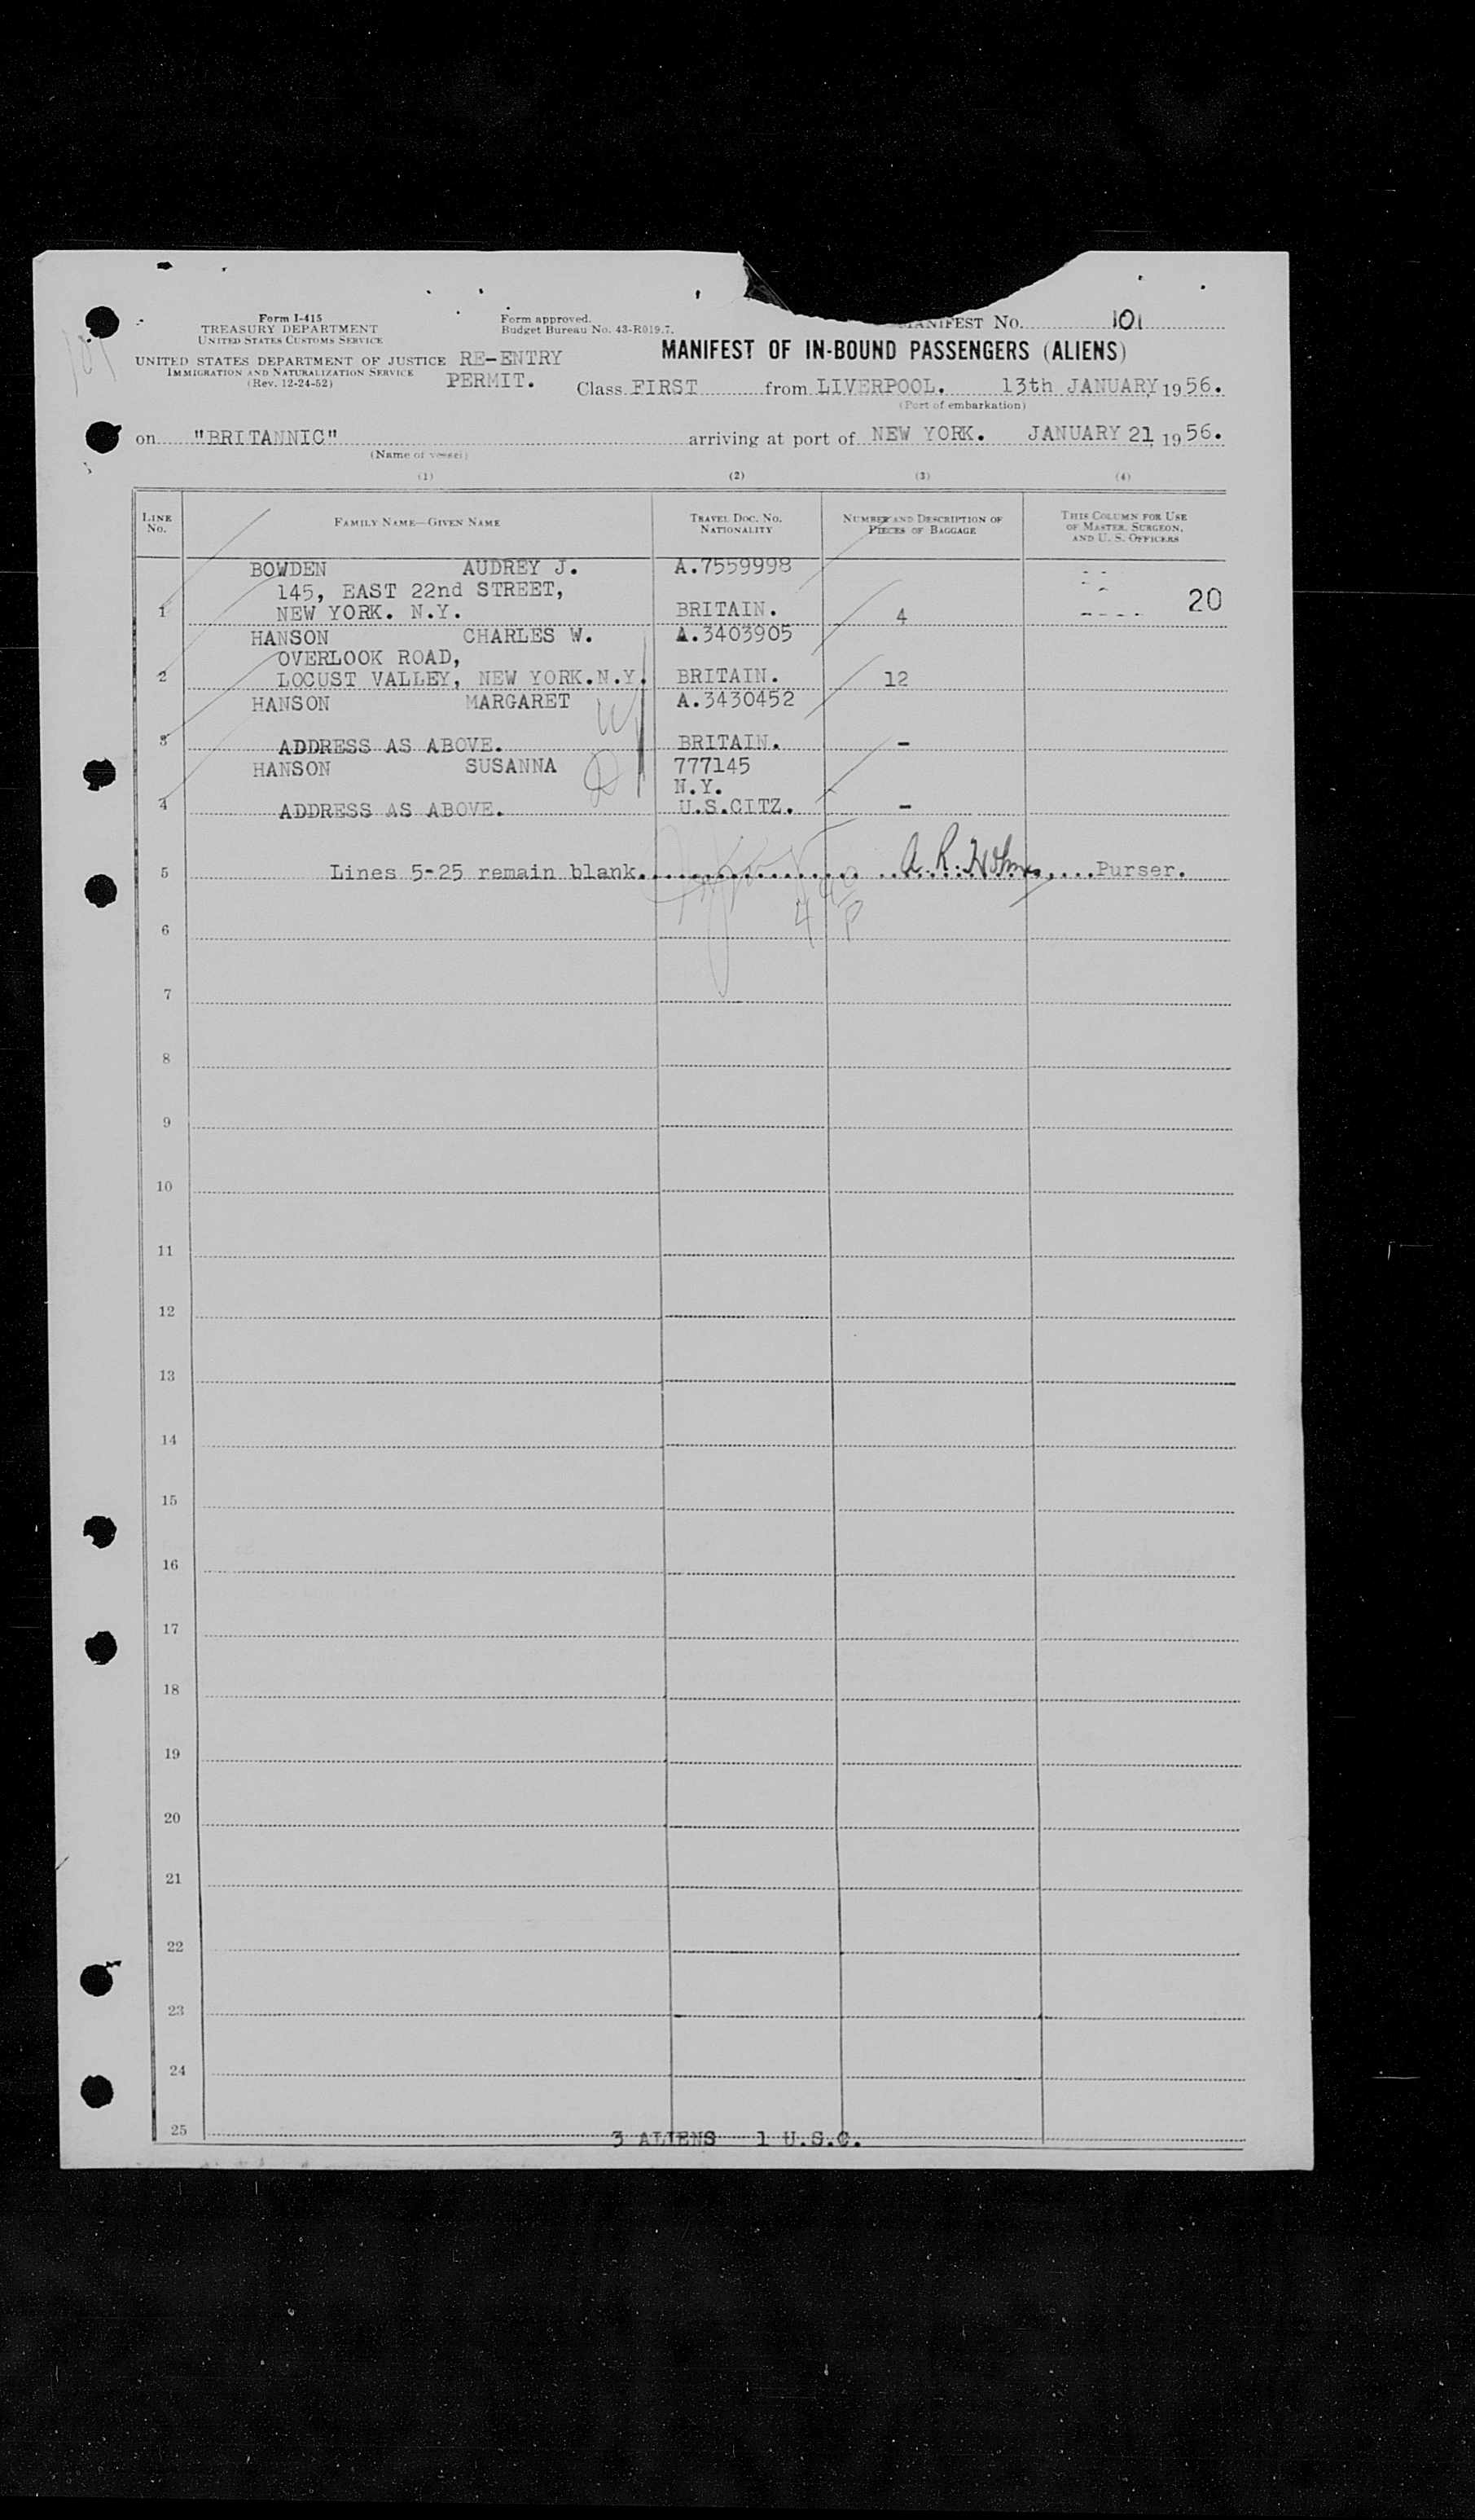 Form I-415
TREASURY DEPARTMENT
UNITED STATES CUSTOMS SERVICE
UNITED STATES DEPARTMENT OF JUSTICE
IMMIGRATION AND NATURALIZATION SERVICE
(Rev. 12-24-52)
Form approved.
Budget Bureau No. 43-R019.7.
RE-ENTRY
PERMIT.
MANIFEST NO. 101
MANIFEST OF IN-BOUND PASSENGERS (ALIENS)
Class FIRST from LIVERPOOL. 13th JANUARY, 1956.
(Port of embarkation)
on "BRITANNIC" arriving at port of NEW YORK. JANUARY 21, 1956.
(Name of vessel)
(1) (2) (3) (4)
LINE NO. FAMILY NAME—GIVEN NAME TRAVEL DOC. NO. NATIONALITY NUMBER AND DESCRIPTION OF PIECES OF BAGGAGE THIS COLUMN FOR USE OF MASTER, SURGEON, AND U. S. OFFICERS
BOWDEN AUDREY J. A.7559998
145, EAST 22nd STREET,
1 NEW YORK. N.Y. BRITAIN. 4 20
HANSON CHARLES W. A.3403905
OVERLOOK ROAD,
2 LOCUST VALLEY, NEW YORK.N.Y. BRITAIN. 12
HANSON MARGARET A.3430452
3 ADDRESS AS ABOVE. BRITAIN. -
HANSON SUSANNA 777145
N.Y.
4 ADDRESS AS ABOVE. U.S.CITZ. -
5 Lines 5-25 remain blank. A. R. Purser.
6
7
8
9
10
11
12
13
14
15
16
17
18
19
20
21
22
23
24
25
3 ALIENS 1 U.S.C.